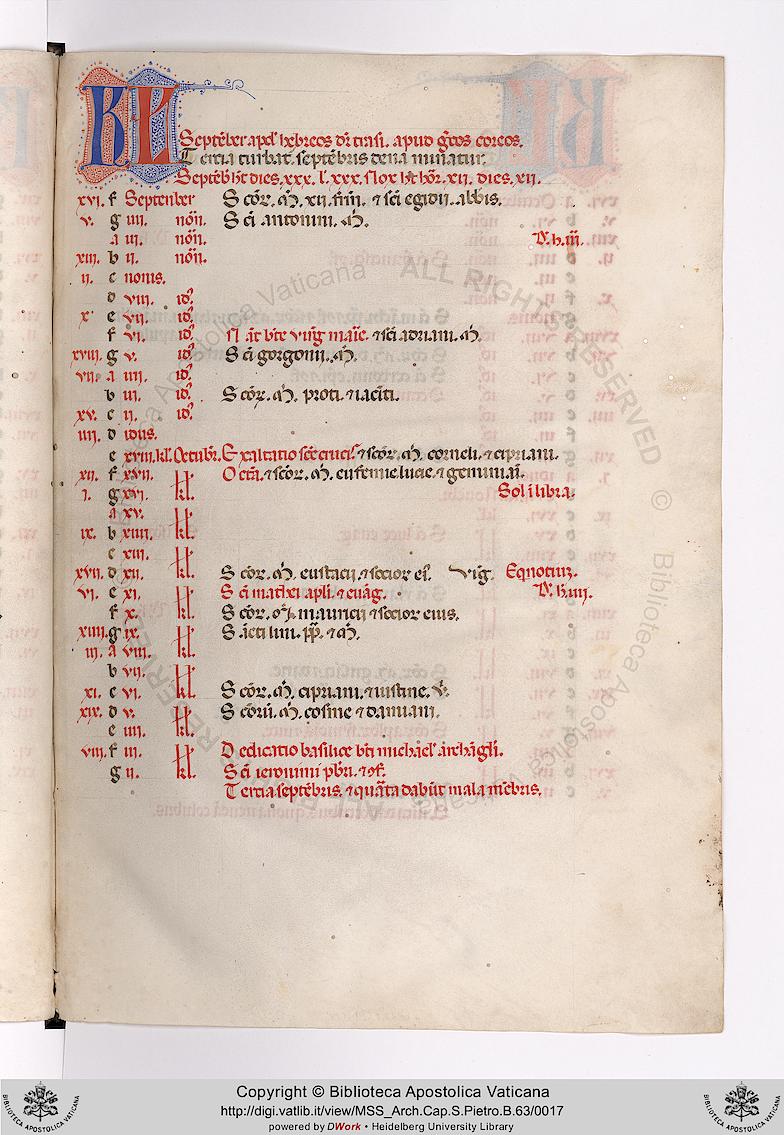 KL
Septēber apel' hebreos dr̄ tirasi. apud grc̄os coreos.
Tercia turbat. septēbris dena minatur.
Septēb̄ h̄t dies .xxx. l'. xxx. Nox h̄t hōr. xii. dies. xii.
xvi. f Septenber Scōr. m̄. xii. fr̄m. ⁊ sc̄i egidii. abbīs.
v. g iiii. nōn. Sc̄i antonini. m̄.
a iii. nōn. D. h. iii.
xiii. b ii. nōn.
ii. c nonis.
d viii. id'.
x. e vii. id'.
f vi. id'. Nat̄ bt̄e virḡ marīe. ⁊ sc̄i adriani. m̄.
xviii. g v. id'. Sc̄i gorgonii. m̄.
vii. a iiii. id'.
b iii. id'. Scōr. m̄. proti. ⁊ iacīti.
xv. c ii. id'.
iiii. d idus.
e xviii. kl'. Octubr̄. Exaltatio sc̄e crucis. ⁊ scōr. m̄. corneli. ⁊ cipriani.
xii. f xvii. kl. Octā. ⁊ scōr. m̄. eufemie. lucie. ⁊ geminiani.
i. g xvi. Sol ī libra.
a xv. kl.
ix. b xiiii.
c xiii. kl.
xvii. d xii. Scōr. m̄. eustacii. ⁊ socior ei'. Viḡ. Eqnotiuz.
vi. e xi. kl. Sc̄i mathei apl̄i. ⁊ euāg. D. h. iiii.
f x. Scōr. m̄. mauricii ⁊ socior eius.
xiiii. g ix. kl. S. .ic̄ti lini. pp̄. ⁊ m̄.
iii. a viii.
b vii. kl.
xi. c vi. Scōr. m̄. cipriani. ⁊ iustine. v̄.
xix. d v. kl. Scōrū. m̄. cosme ⁊ damiani.
e iiii.
viii. f iii. kl. Dedicatio basilice bt̄i michael' archāgl̄i.
g ii. Sc̄i ieronimi pb̄ri. ⁊ ɔf.
Tercia septēbris. ⁊ quārta dabūt mala mēbris.
ALL RIGHTS RESERVED © Biblioteca Apostolica Vaticana
BIBLIOTECA APOSTOLICA VATICANA
Copyright © Biblioteca Apostolica Vaticana
http://digi.vatlib.it/view/MSS_Arch.Cap.S.Pietro.B.63/0017
powered by DWork • Heidelberg University Library
BIBLIOTECA APOSTOLICA VATICANA